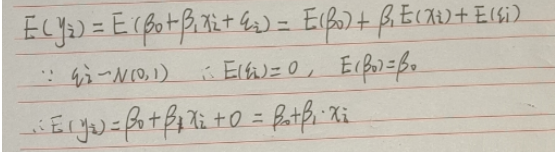 E(yᵢ) = E(β₀+β₁xᵢ+εᵢ) = E(β₀)+β₁E(xᵢ)+E(εᵢ)
∵ εᵢ~N(0,1) ∴ E(εᵢ)=0, E(β₀)=β₀
∴ E(yᵢ)=β₀+β₁xᵢ+0 = β₀+β₁·xᵢ